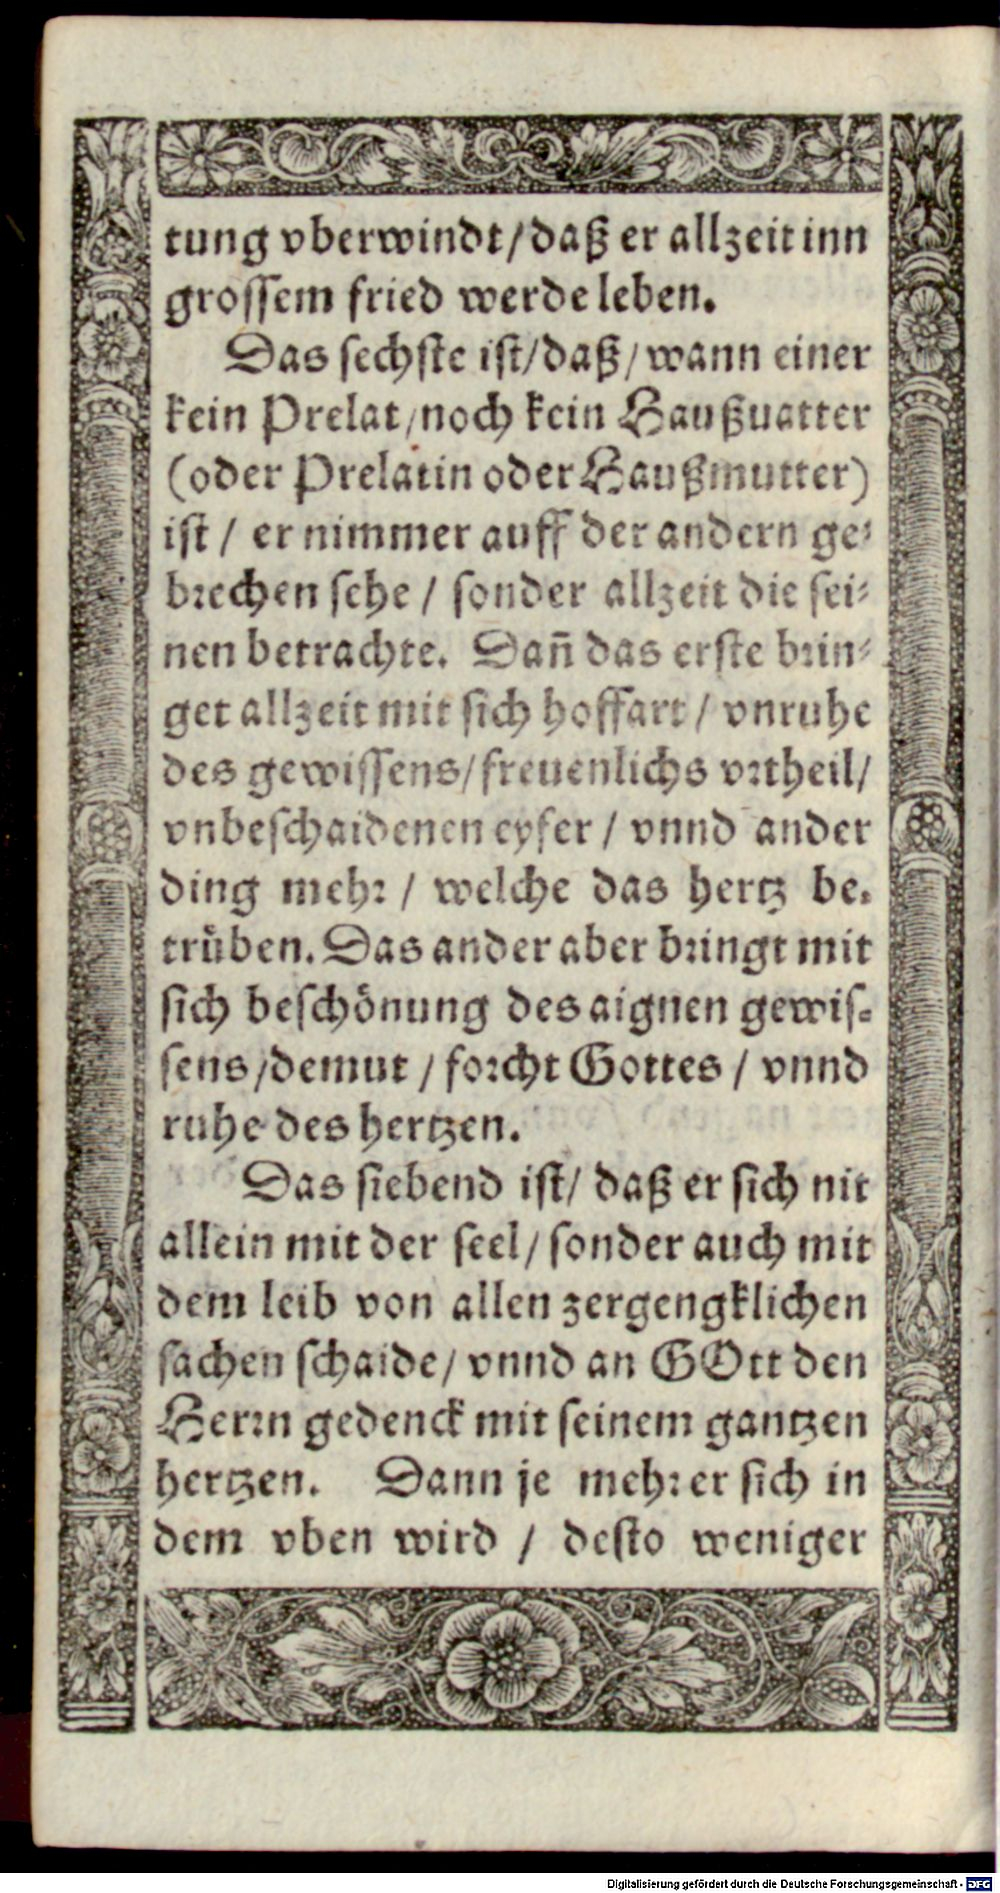 tung vberwindt/daß er allzeit inn
grossem fried werde leben.
Das sechste ist/daß/wann einer
kein Prelat/noch kein Haußuatter
(oder Prelatin oder Haußmutter)
ist / er nimmer auff der andern ge-
brechen sehe / sonder allzeit die sei-
nen betrachte. Dañ das erste brin-
get allzeit mit sich hoffart / vnruhe
des gewissens/freuenlichs vrtheil/
vnbeschaidenen eyfer / vnnd ander
ding mehr / welche das hertz be-
trüben. Das ander aber bringt mit
sich beschönung des aignen gewis-
sens/demut / forcht Gottes / vnnd
ruhe des hertzen.
Das siebend ist/ daß er sich nit
allein mit der seel/sonder auch mit
dem leib von allen zergengklichen
sachen schaide/ vnnd an GOtt den
Herrn gedenck mit seinem gantzen
hertzen. Dann je mehr er sich in
dem vben wird / desto weniger
Digitalisierung gefördert durch die Deutsche Forschungsgemeinschaft - DFG